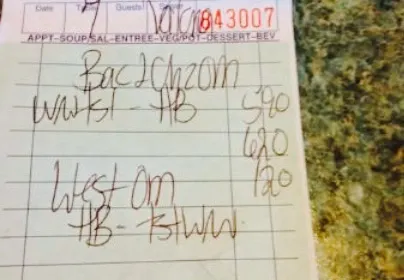 Date Table Guests Server 843007
APPT-SOUP/SAL-ENTREE-VEG/POT-DESSERT-BEV
Bac 2 Chz om
WWTst - HB 590
620
West om 120
HB - Tst WW